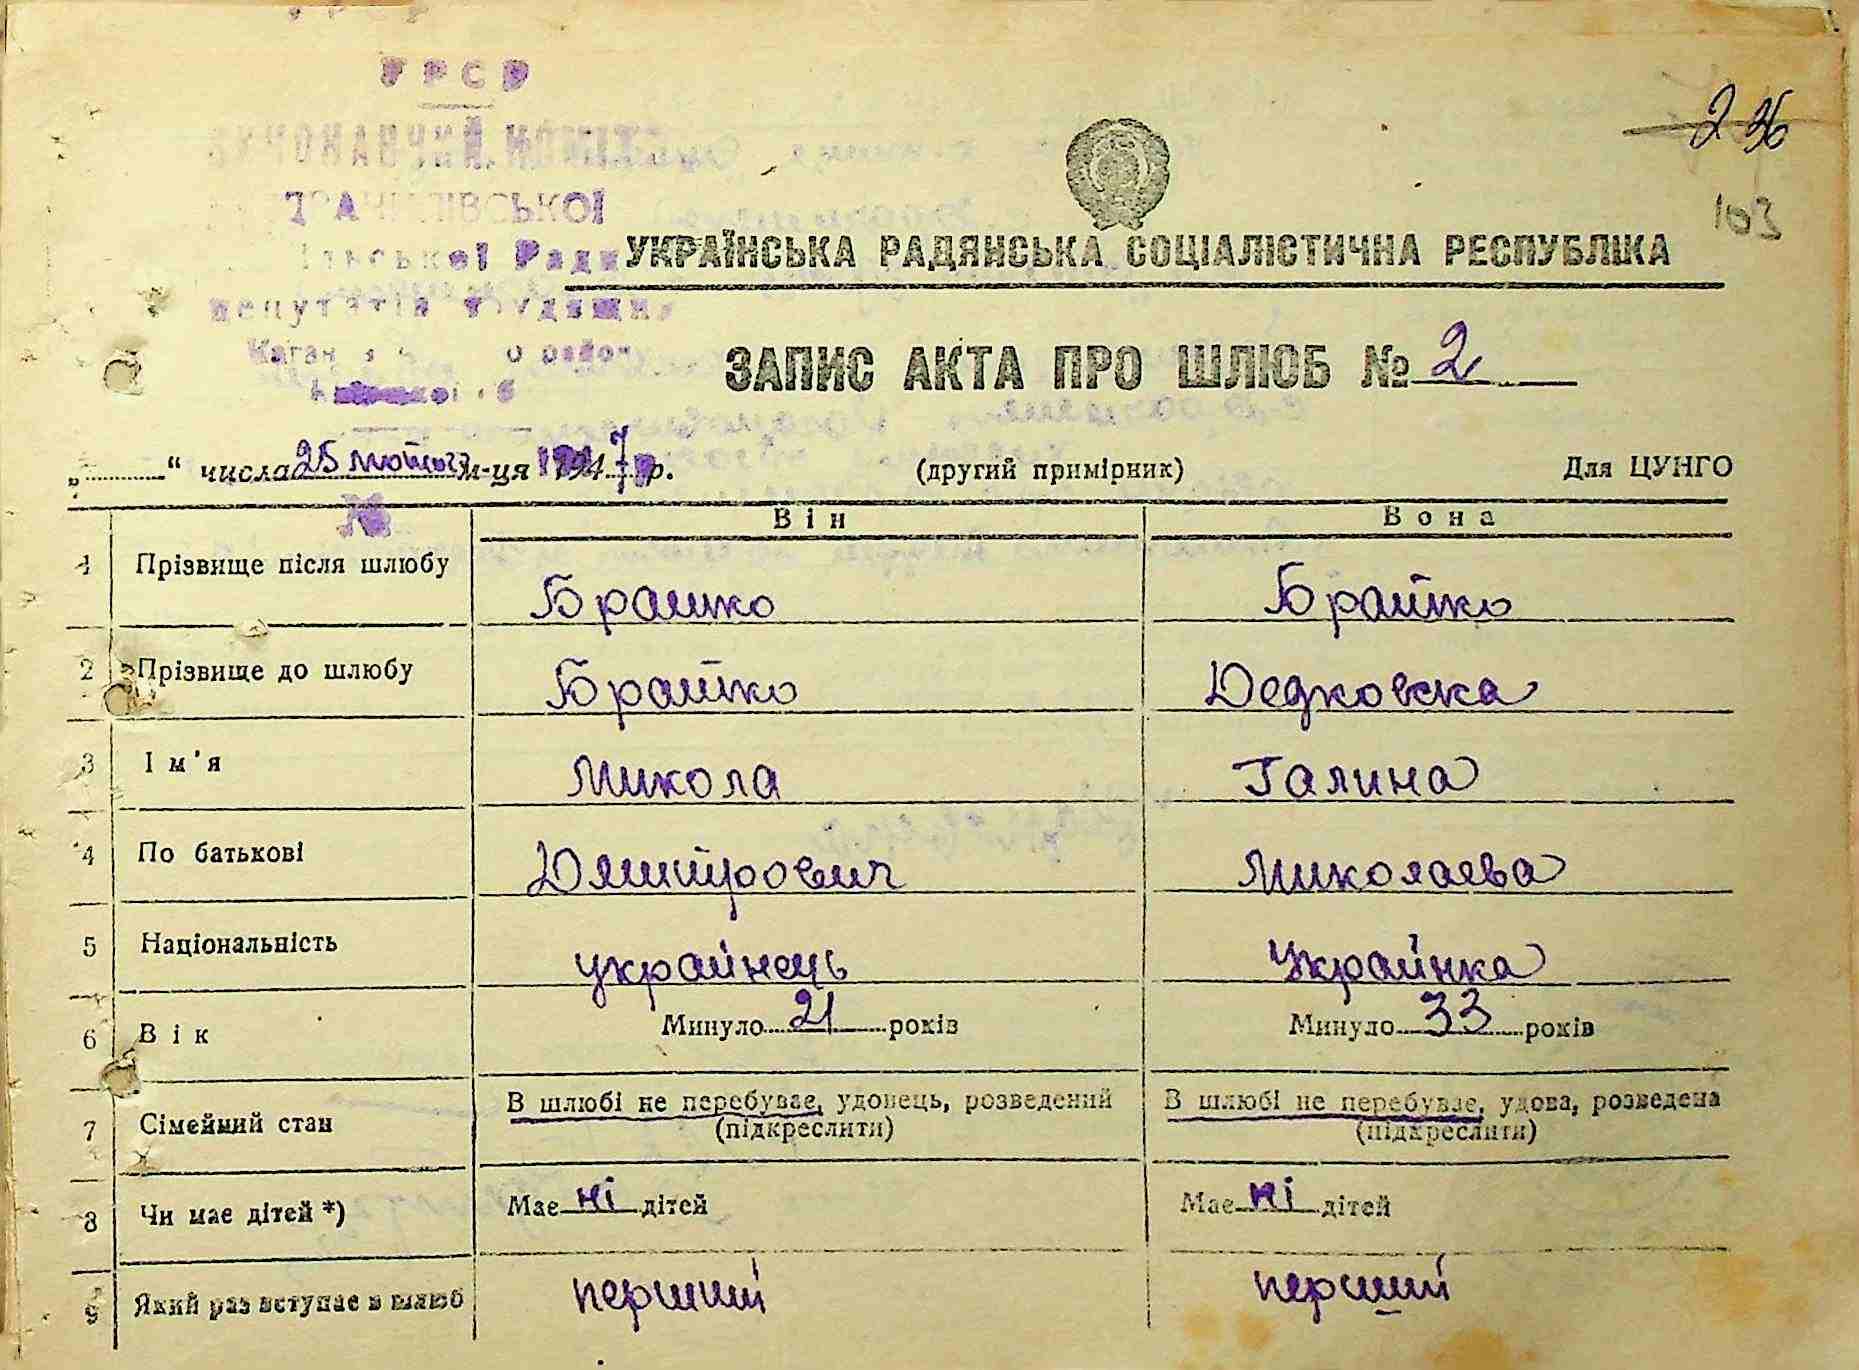 УРСР
ВИКОНАВЧИЙ КОМІТЕТ
депутатів трудящих
2 36
103
УКРАЇНСЬКА РАДЯНСЬКА СОЦІАЛІСТИЧНА РЕСПУБЛІКА
ЗАПИС АКТА ПРО ШЛЮБ № 2
„ “ числа 25 лютого м-ця 1947 р. (другий примірник) Для ЦУНГО
Він Вона
1 Прізвище після шлюбу Брашко Брашко
2 Прізвище до шлюбу Брашко Дедковска
3 Ім'я Микола Галина
4 По батькові Дмитрович Миколаева
5 Національність українець Українка
6 Вік Минуло 21 років Минуло 33 років
7 Сімейний стан В шлюбі не перебуває, удовець, розведений (підкреслити) В шлюбі не перебуває, удова, розведена (підкреслити)
8 Чи має дітей *) Має ні дітей Має ні дітей
9 Який раз вступає в шлюб перший перший